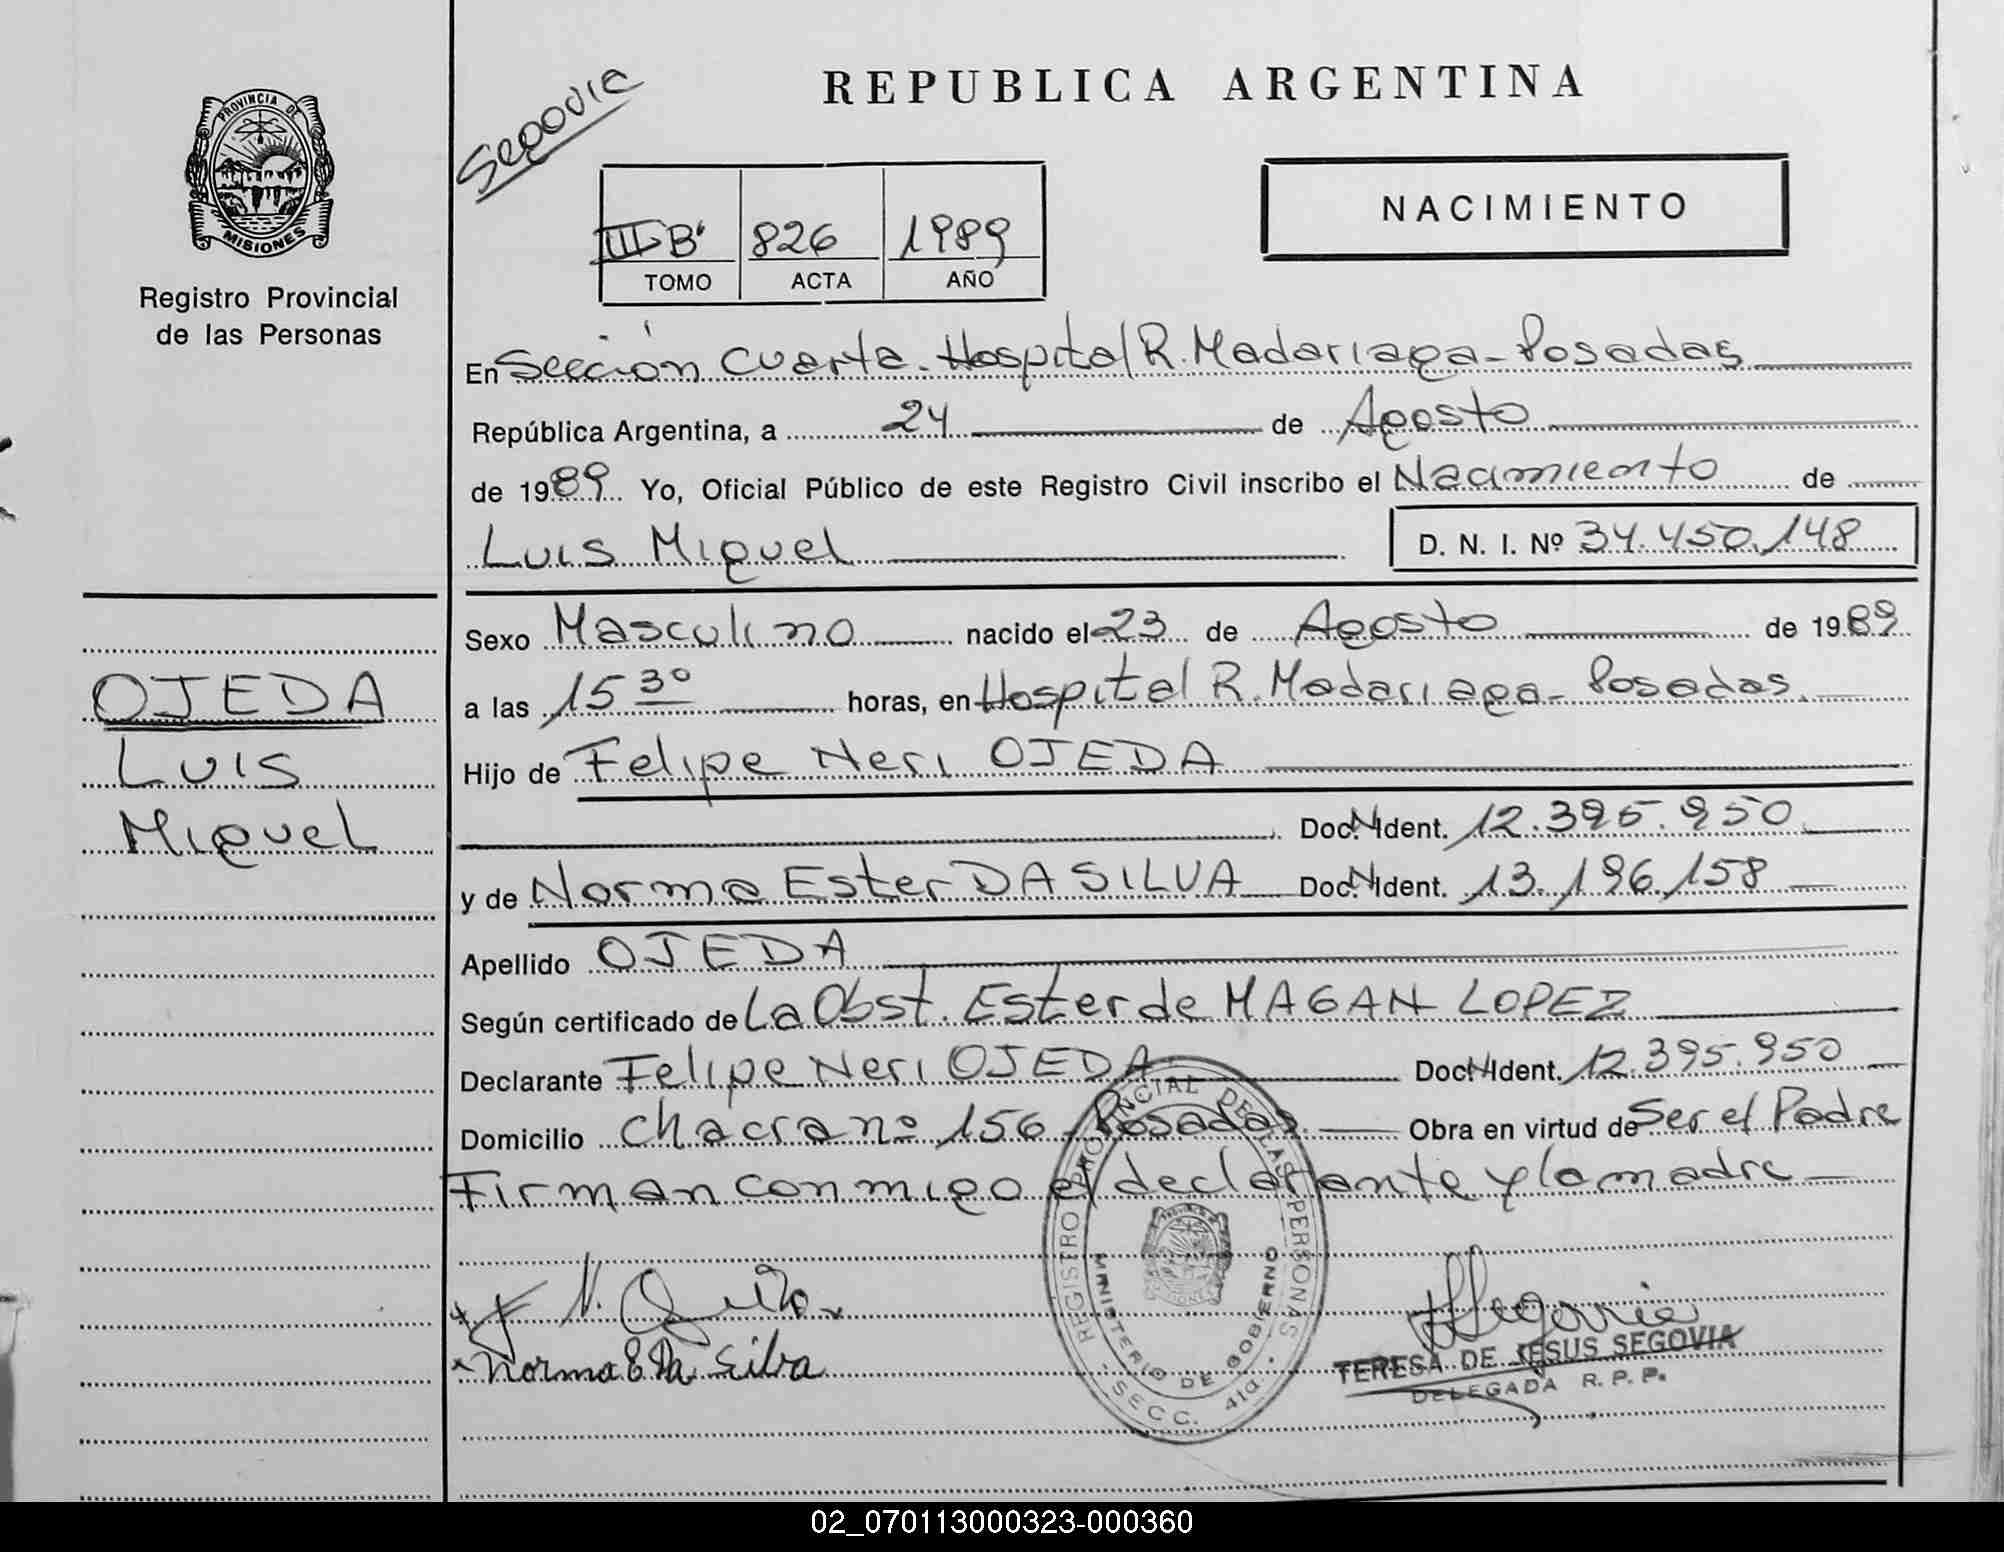 PROVINCIA DE
MISIONES
Registro Provincial
de las Personas
OJEDA
Luis
Miguel
Segovia
REPUBLICA ARGENTINA
III "B" 826 1989
TOMO ACTA AÑO
NACIMIENTO
En Sección Cuarta. Hospital R. Madariaga - Posadas
República Argentina, a 24 de Agosto
de 1989 Yo, Oficial Público de este Registro Civil inscribo el Nacimiento de
Luis Miguel D. N. I. Nº 34.450.148
Sexo Masculino nacido el 23 de Agosto de 1989
a las 15 30 horas, en Hospital R. Madariaga - Posadas.
Hijo de Felipe Neri OJEDA
Doc. N. Ident. 12.395.950
y de Norma Ester DA SILVA Doc. N. Ident. 13.196.158
Apellido OJEDA
Según certificado de La Obst. Ester de MAGAN LOPEZ
Declarante Felipe Neri OJEDA Doc. N. Ident. 12.395.950
Domicilio Chacra nº 156 - Posadas. Obra en virtud de Ser el Padre
Firman conmigo el declarante y la madre
REGISTRO PROVINCIAL DE LAS PERSONAS
MINISTERIO DE GOBIERNO
SECC. 4ta.
Norma E. Da Silva
Segovia
TERESA DE JESUS SEGOVIA
DELEGADA R. P. P.
02_070113000323-000360